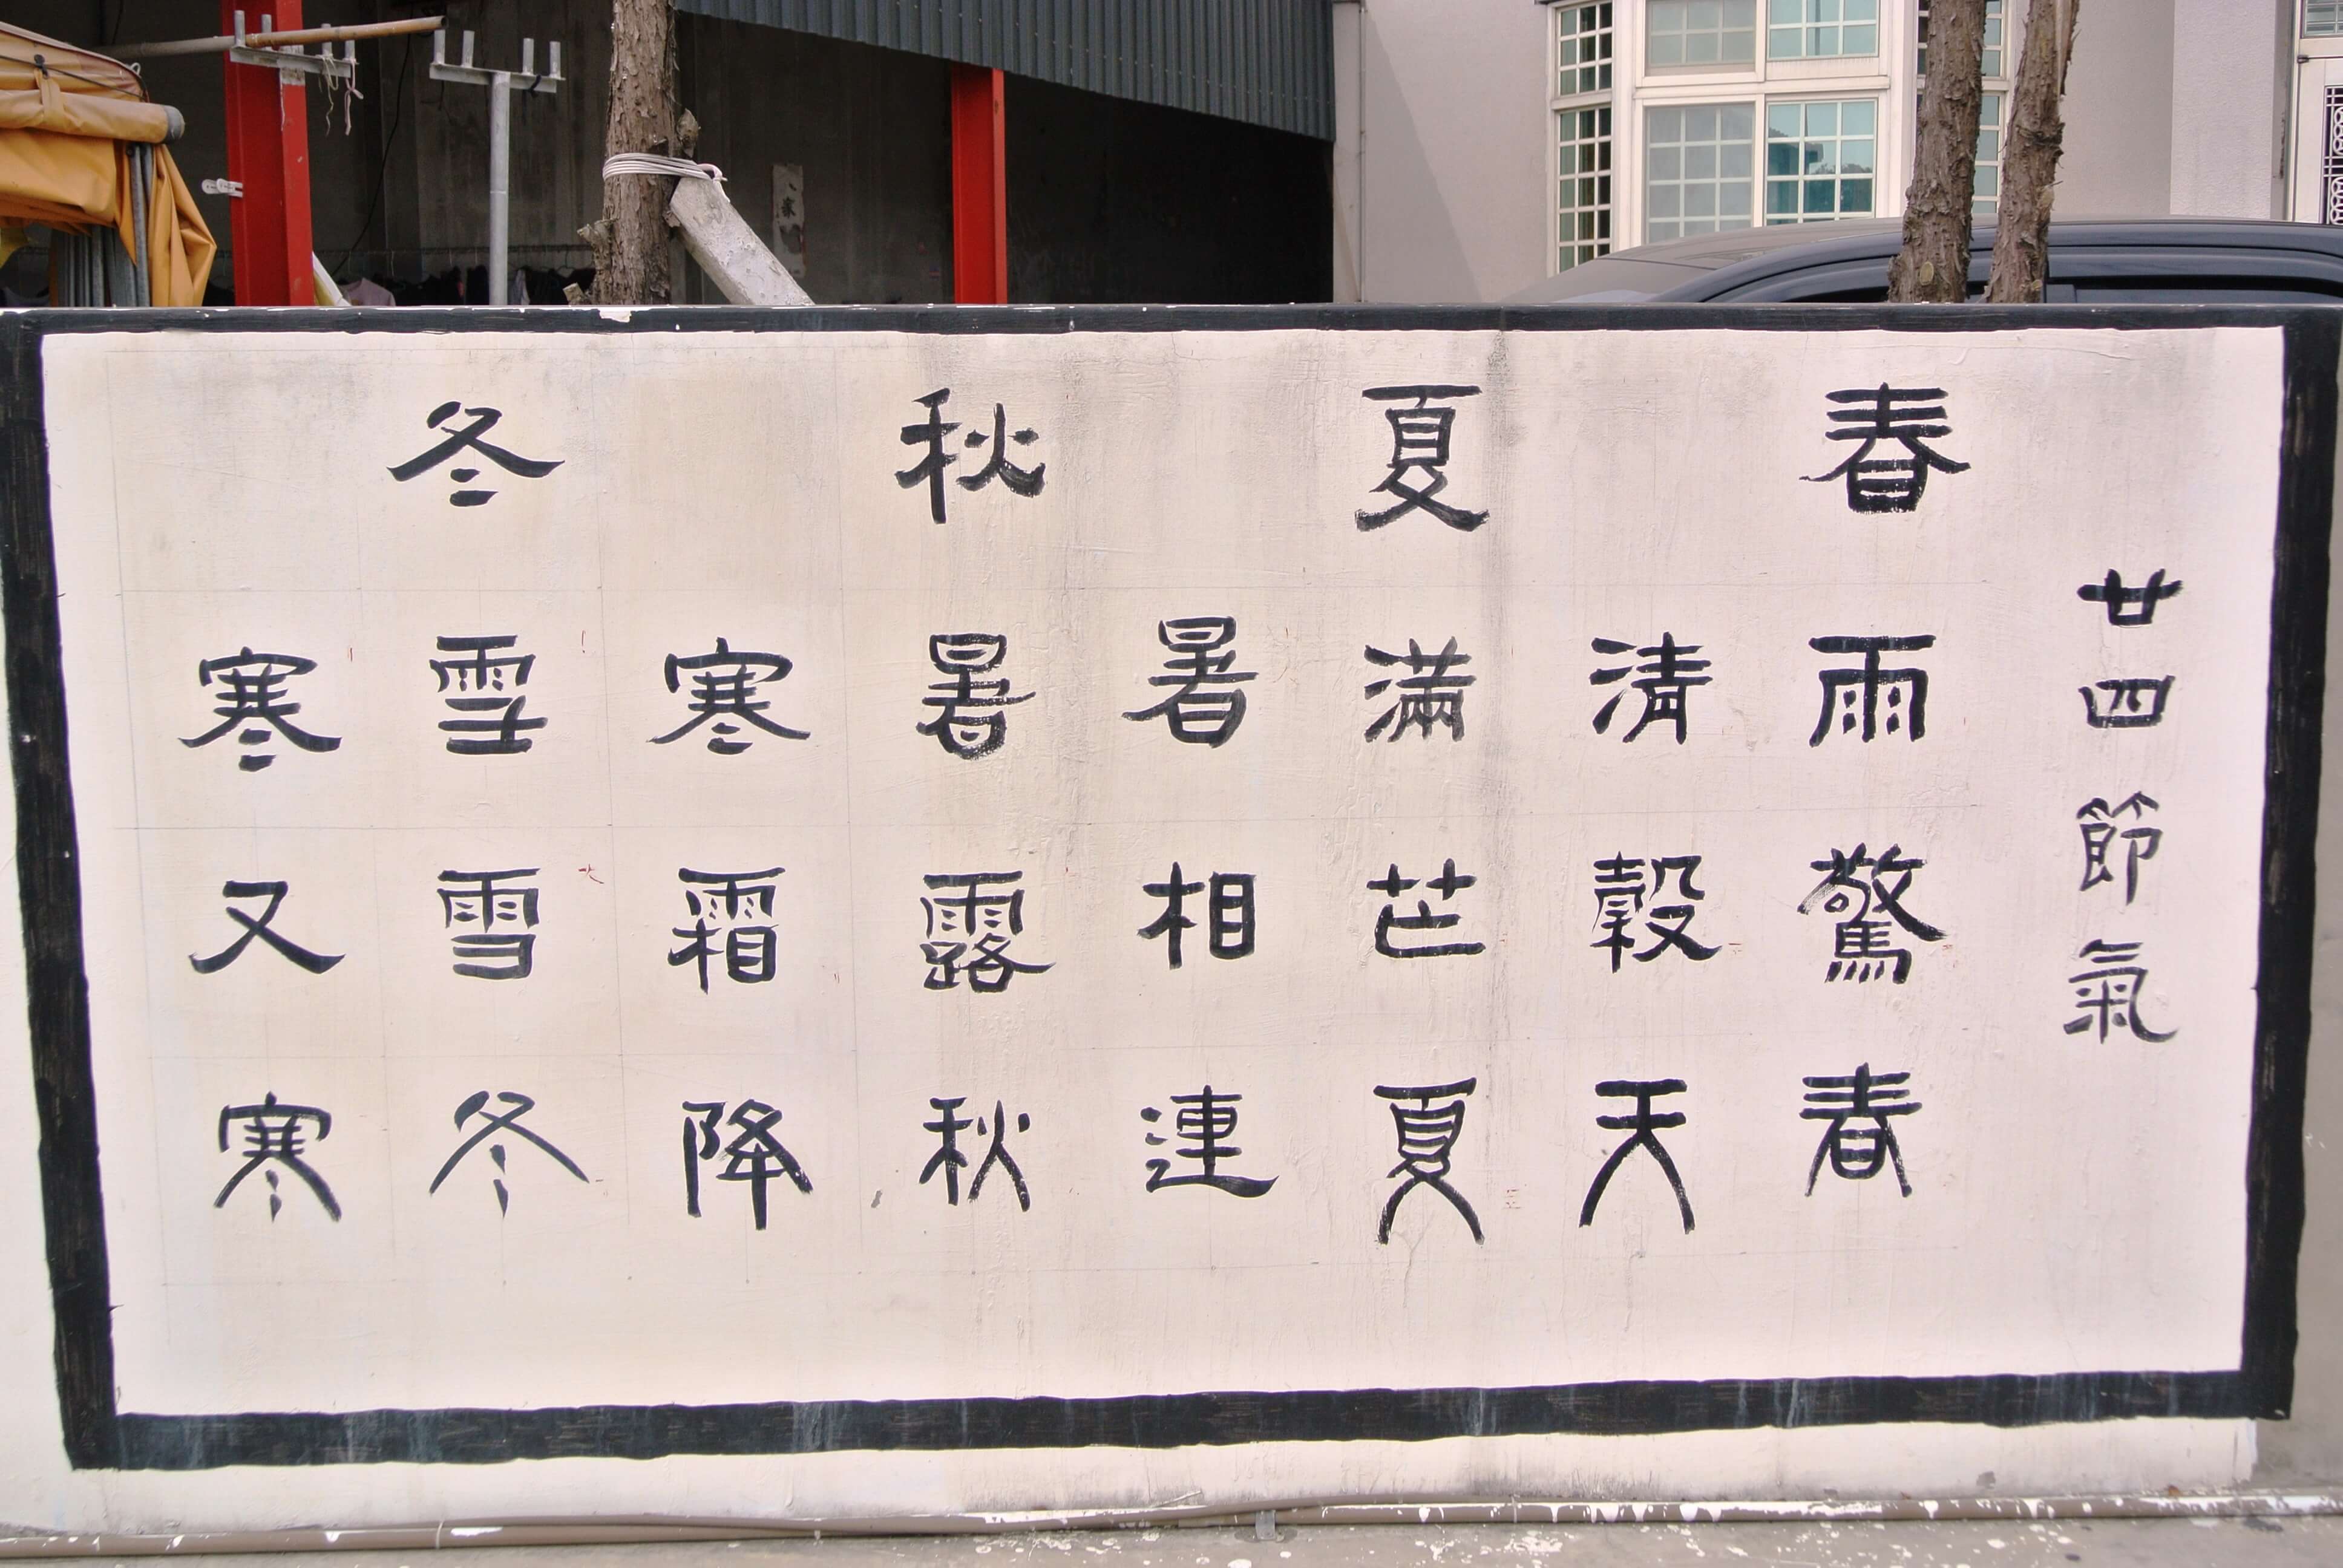 廿四節氣
春雨驚春
清穀天
夏滿芒夏
暑相連
秋暑露秋
寒霜降
冬雪雪冬
寒又寒